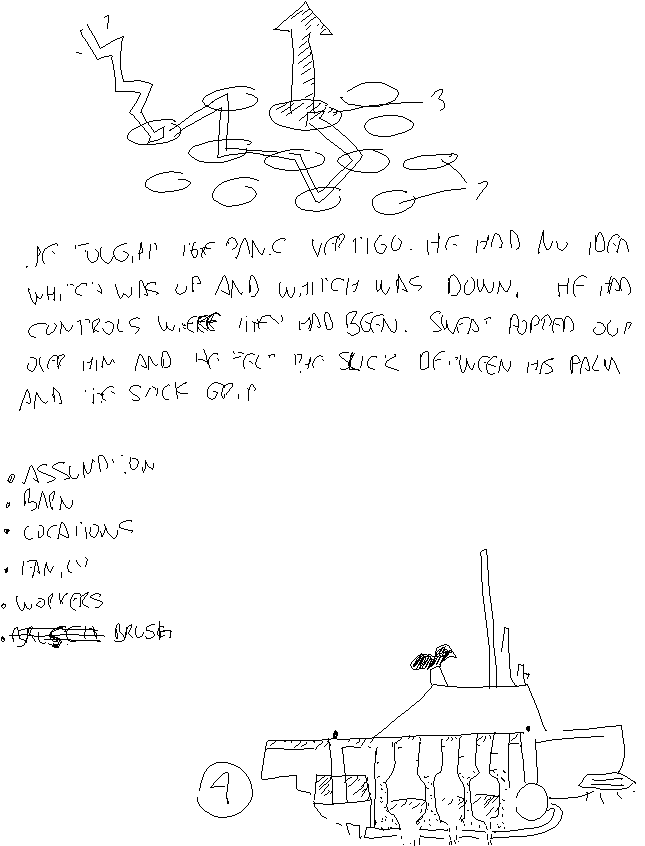 1
3
2
HE FOUGHT THE PANIC VERTIGO. HE HAD NO IDEA
WHICH WAS UP AND WHICH WAS DOWN. HE HAD
CONTROLS WHERE THEY HAD BEEN. SWEAT POPPED OUT
OVER HIM AND HE FELT THE SLICK BETWEEN HIS PALM
AND THE STICK GRIP
BARN
LOCATIONS
FAMILY
WORKERS
BRUSH
4